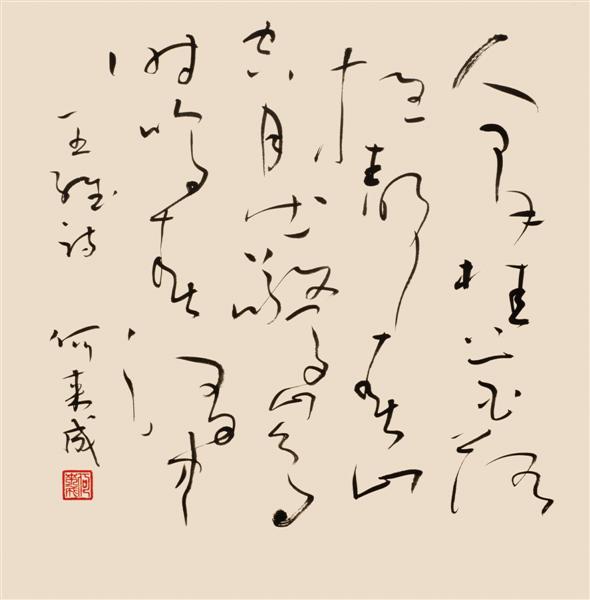 人閒桂花落
夜靜春山
空月出驚山鳥
時鳴春澗中
王維诗 何来成